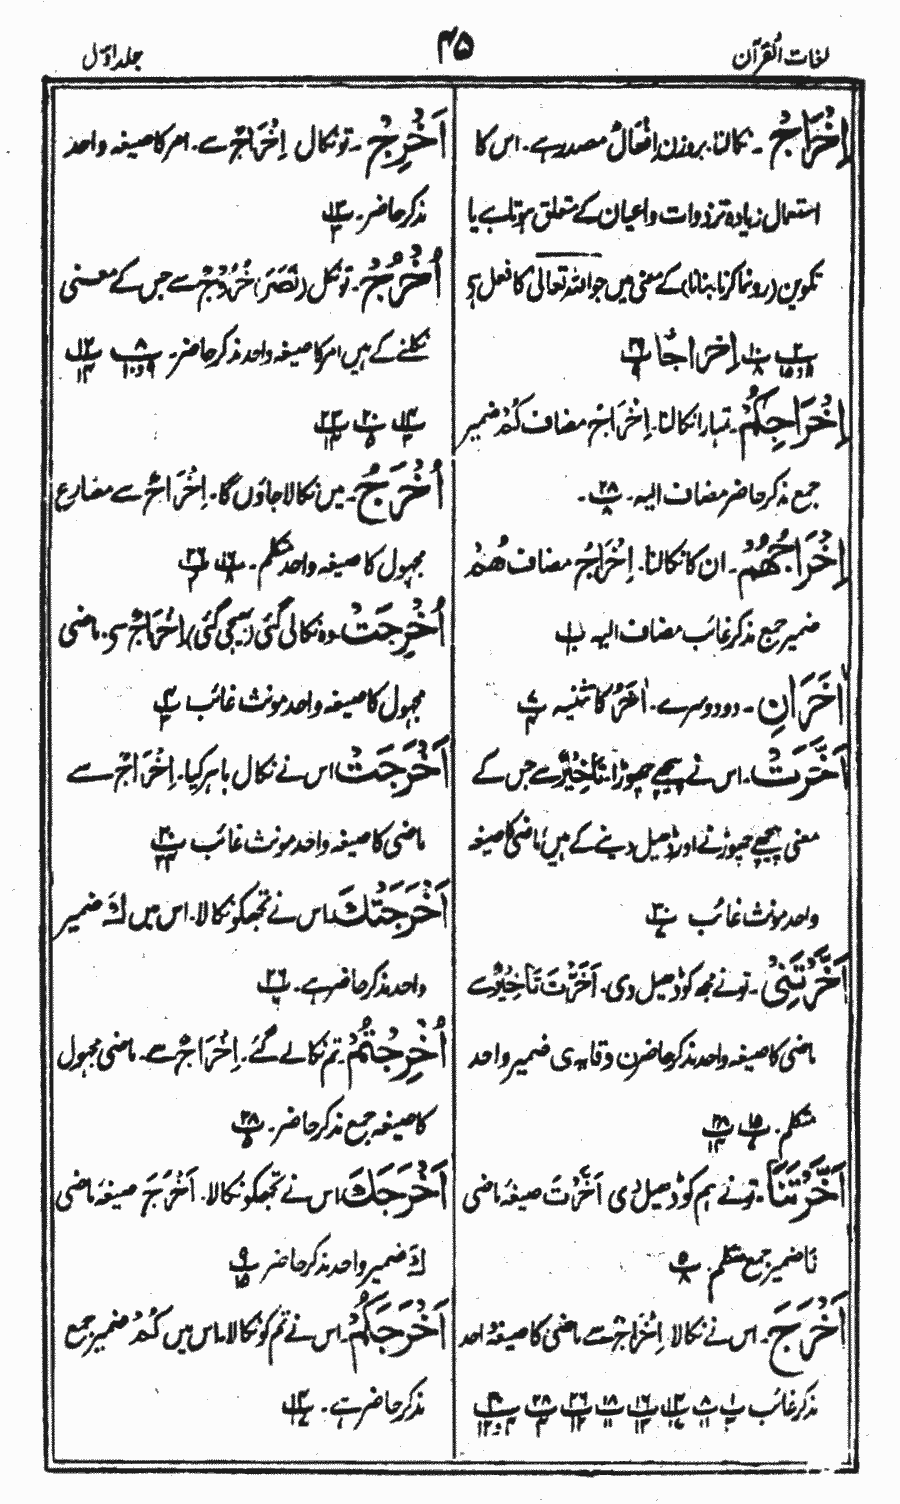 لغات القرآن
۴۵
جلد اول
اِخْرَاجْ ۔ نکالنا۔ بروزن اِفْعَالٌ مصدر ہے۔ اس کا
استعمال زیادہ تر ذوات و اعیان کے متعلق ہوتا ہے یا
تکوین (رونما کرنا۔ بنانا) کے معنی میں جو اللہ تعالٰی کا فعل ہے
اِخْرَاجًا
اِخْرَاجِكُمْ۔ تمہارا نکالنا۔ اِخْرَاجْ مضاف كُمْ ضمیر
جمع مذکر حاضر مضاف الیہ۔ ۲۸ پ ۸ ۔
اِخْرَاجُهُمْ۔ ان کا نکالنا۔ اِخْرَاجُ مضاف هُمْ
ضمیر جمع مذکر غائب مضاف الیہ
اٰخَرَانِ ۔ دو دوسرے۔ اٰخَرُ کا تثنیہ
اَخَّرَتْ۔ اس نے پیچھے چھوڑا۔ تَاْخِیْرٌ سے جس کے
معنی پیچھے چھوڑنے اور ڈھیل دینے کے ہیں، ماضی کا صیغہ
واحد مونث غائب
اَخَّرْتَنِیْ ۔ تونے مجھ کو ڈھیل دی۔ اَخَّرْتَ تَاْخِیْرٌ سے
ماضی کا صیغہ واحد مذکر حاضر ن وقایہ ی ضمیر واحد
متکلم۔ ۱۵ پ ۲۸ پ ۱۴
اَخَّرْتَنَا ۔ تونے ہم کو ڈھیل دی اَخَّرْتَ صیغہ ماضی
نَا ضمیر جمع متکلم۔ ۵ پ ۸
اَخْرَجَ ۔ اس نے نکالا اِخْرَاجْ سے ماضی کا صیغہ واحد
مذکر غائب
اَخْرِجْ ۔ تو نکال اِخْرَاجْ سے۔ امر کا صیغہ واحد
مذکر حاضر۔ ۱۳ پ
اُخْرُجْ ۔ تو نکل (نَصَرَ) خُرُوْجْ سے جس کے معنی
نکلنے کے ہیں امر کا صیغہ واحد مذکر حاضر۔
اُخْرَجُ ۔ میں نکالا جاؤں گا۔ اِخْرَاجْ سے مضارع
مجہول کا صیغہ واحد متکلم۔ ۱۶ پ ۸ ۲۶ پ ۲
اُخْرِجَتْ۔ وہ نکالی گئی (بھیجی گئی) اِخْرَاجْ سے۔ ماضی
مجہول کا صیغہ واحد مونث غائب
اَخْرَجَتْ اس نے نکال باہر کیا۔ اِخْرَاجْ سے
ماضی کا صیغہ واحد مونث غائب ۳۰ پ ۲۴
اَخْرَجَتْكَ اس نے تجھکو نکالا۔ اس میں كَ ضمیر
واحد مذکر حاضر ہے۔ ۲۶ پ
اُخْرِجْتُمْ۔ تم نکالے گئے۔ اِخْرَاجْ سے۔ ماضی مجہول
کا صیغہ جمع مذکر حاضر۔ ۲۸ پ ۵
اَخْرَجَكَ اس نے تجھکو نکالا۔ اَخْرَجَ صیغہ ماضی
كَ ضمیر واحد مذکر حاضر ۹ پ ۱۵
اَخْرَجَكُمْ۔ اس نے تم کو نکالا۔ اس میں كُمْ ضمیر جمع
مذکر حاضر ہے۔